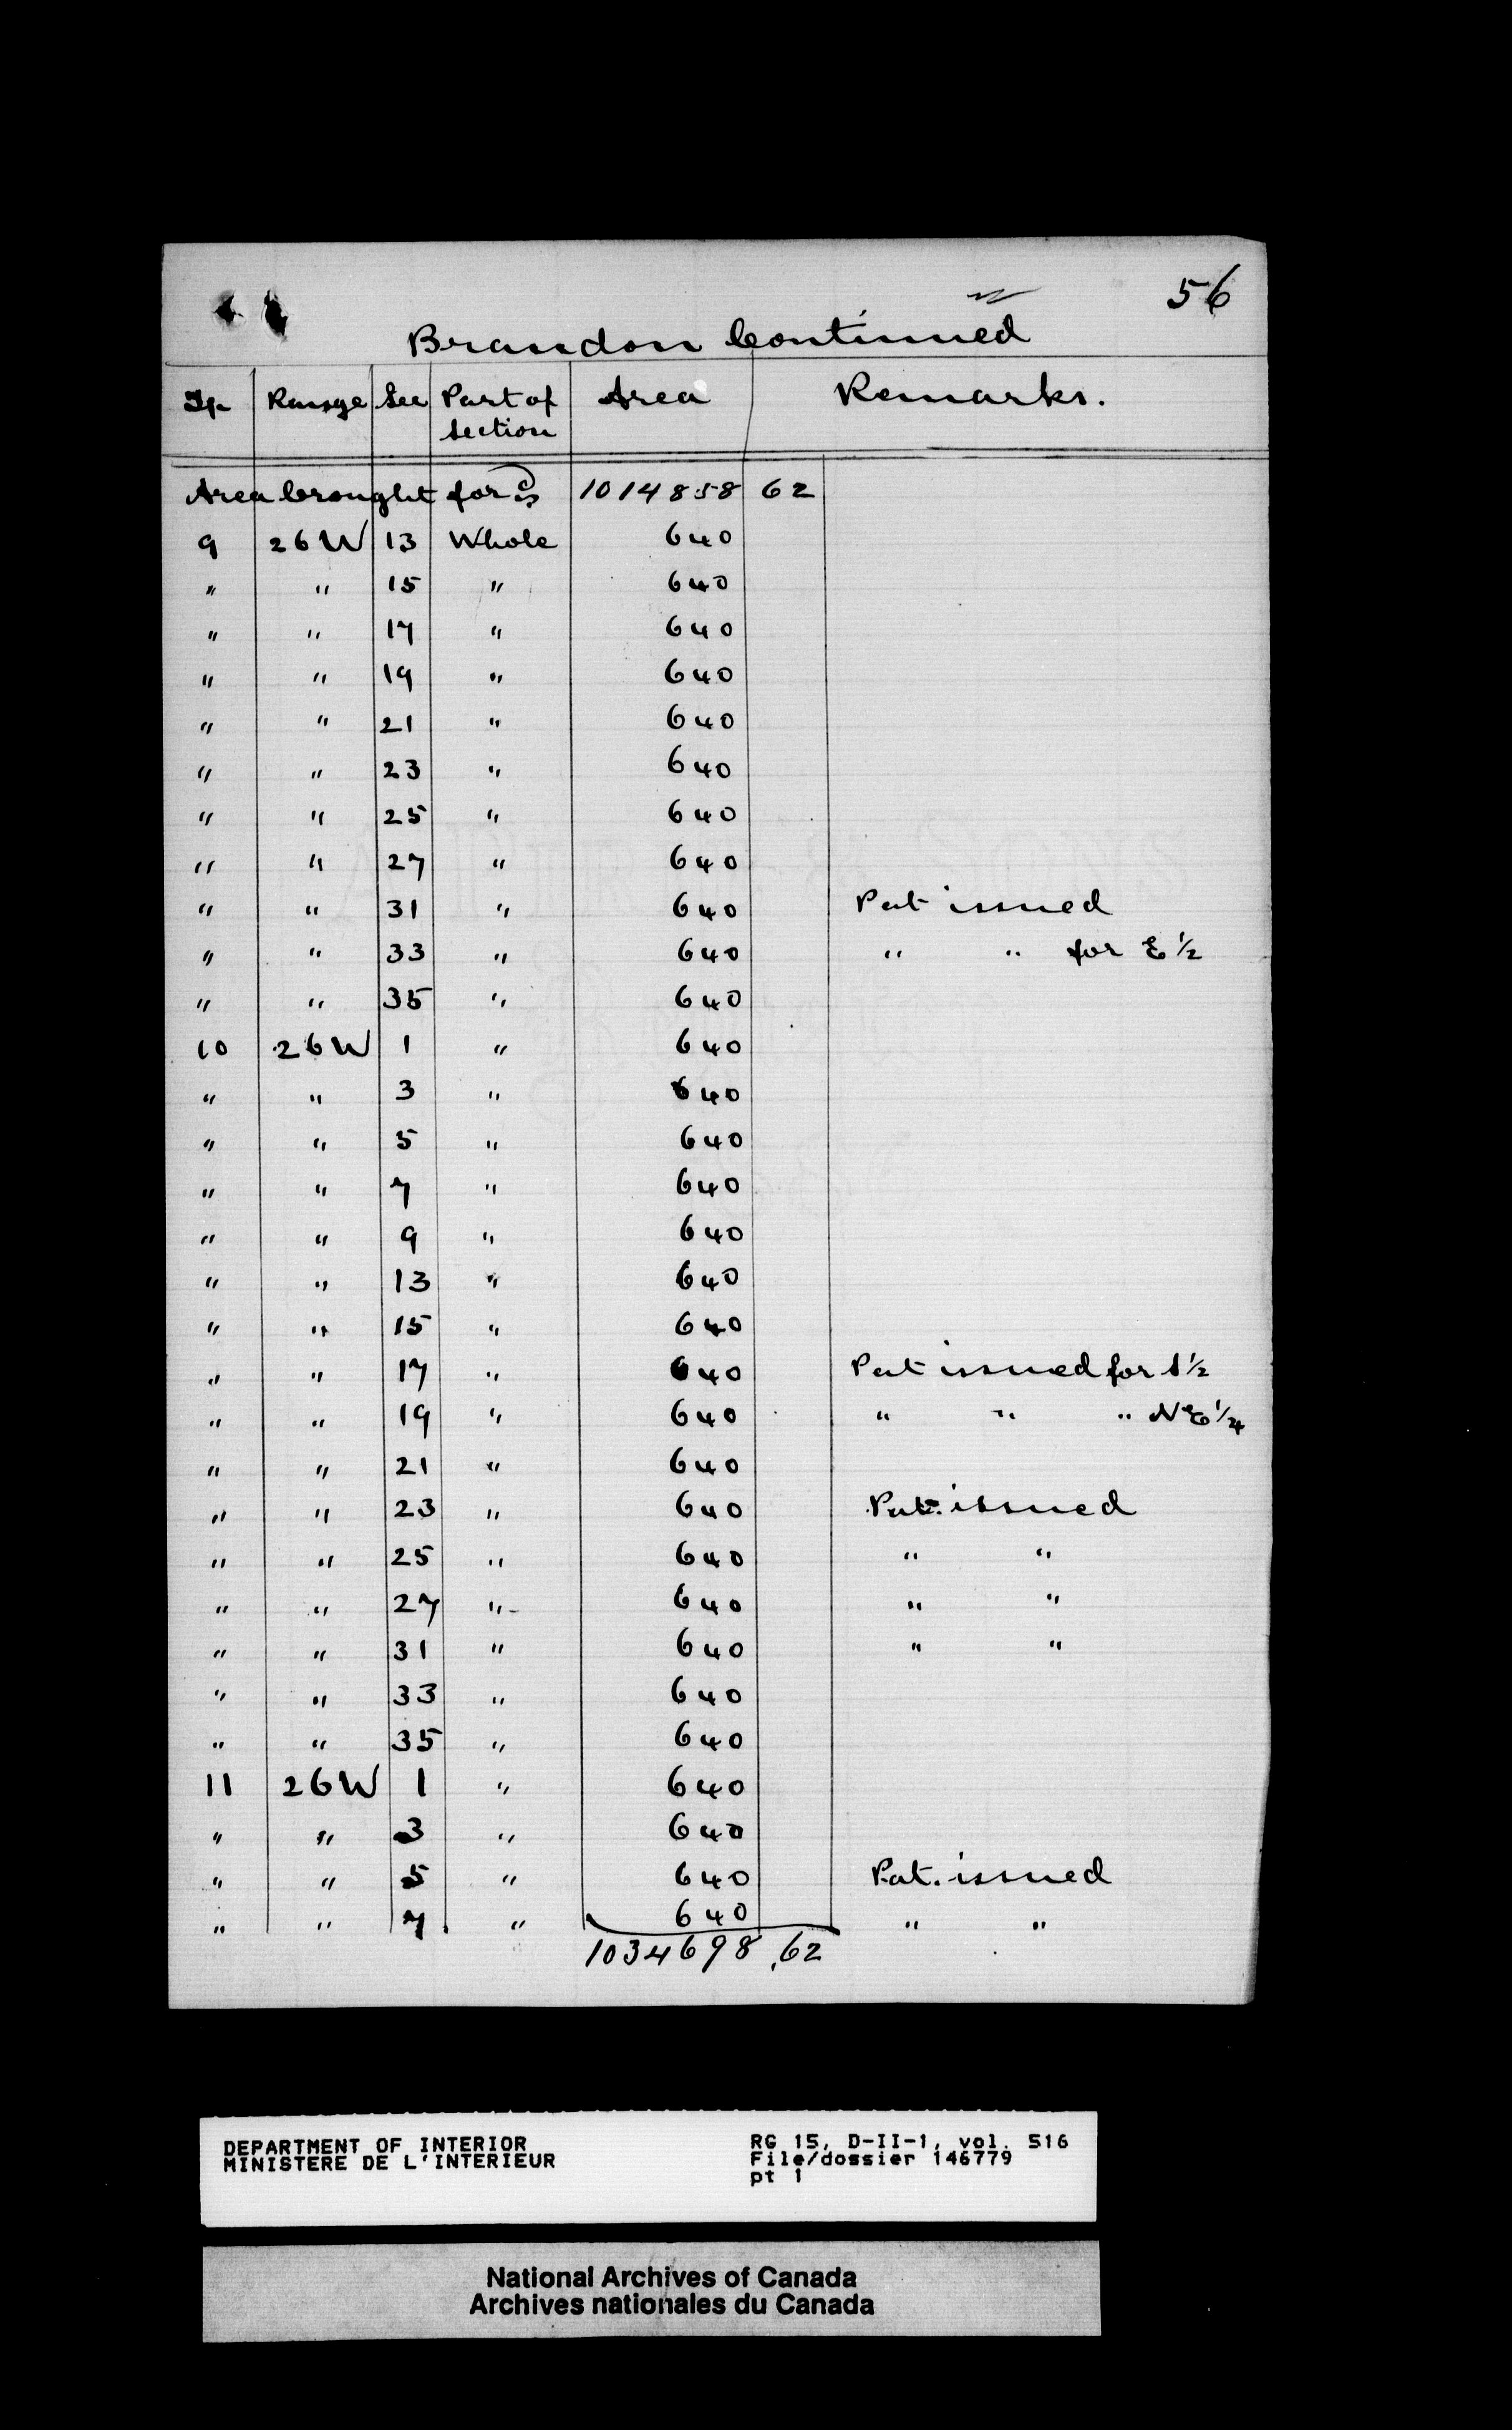 56
Brandon Continued
Tp Range Sec Part of Section Area Remarks.
Area brought for'd 1014858 62
9 26W 13 Whole 640
" " 15 " 640
" " 17 " 640
" " 19 " 640
" " 21 " 640
" " 23 " 640
" " 25 " 640
" " 27 " 640
" " 31 " 640 Pat issued
" " 33 " 640 " " for E ½
" " 35 " 640
10 26W 1 " 640
" " 3 " 640
" " 5 " 640
" " 7 " 640
" " 9 " 640
" " 13 " 640
" " 15 " 640
" " 17 " 640 Pat issued for S ½
" " 19 " 640 " " " NE ¼
" " 21 " 640
" " 23 " 640 Pat. issued
" " 25 " 640 " "
" " 27 " 640 " "
" " 31 " 640 " "
" " 33 " 640
" " 35 " 640
11 26W 1 " 640
" " 3 " 640
" " 5 " 640 Pat. issued
" " 7 " 640 " "
1034698.62
DEPARTMENT OF INTERIOR
MINISTERE DE L'INTERIEUR
RG 15, D-II-1, vol. 516
File/dossier 146779
pt 1
National Archives of Canada
Archives nationales du Canada